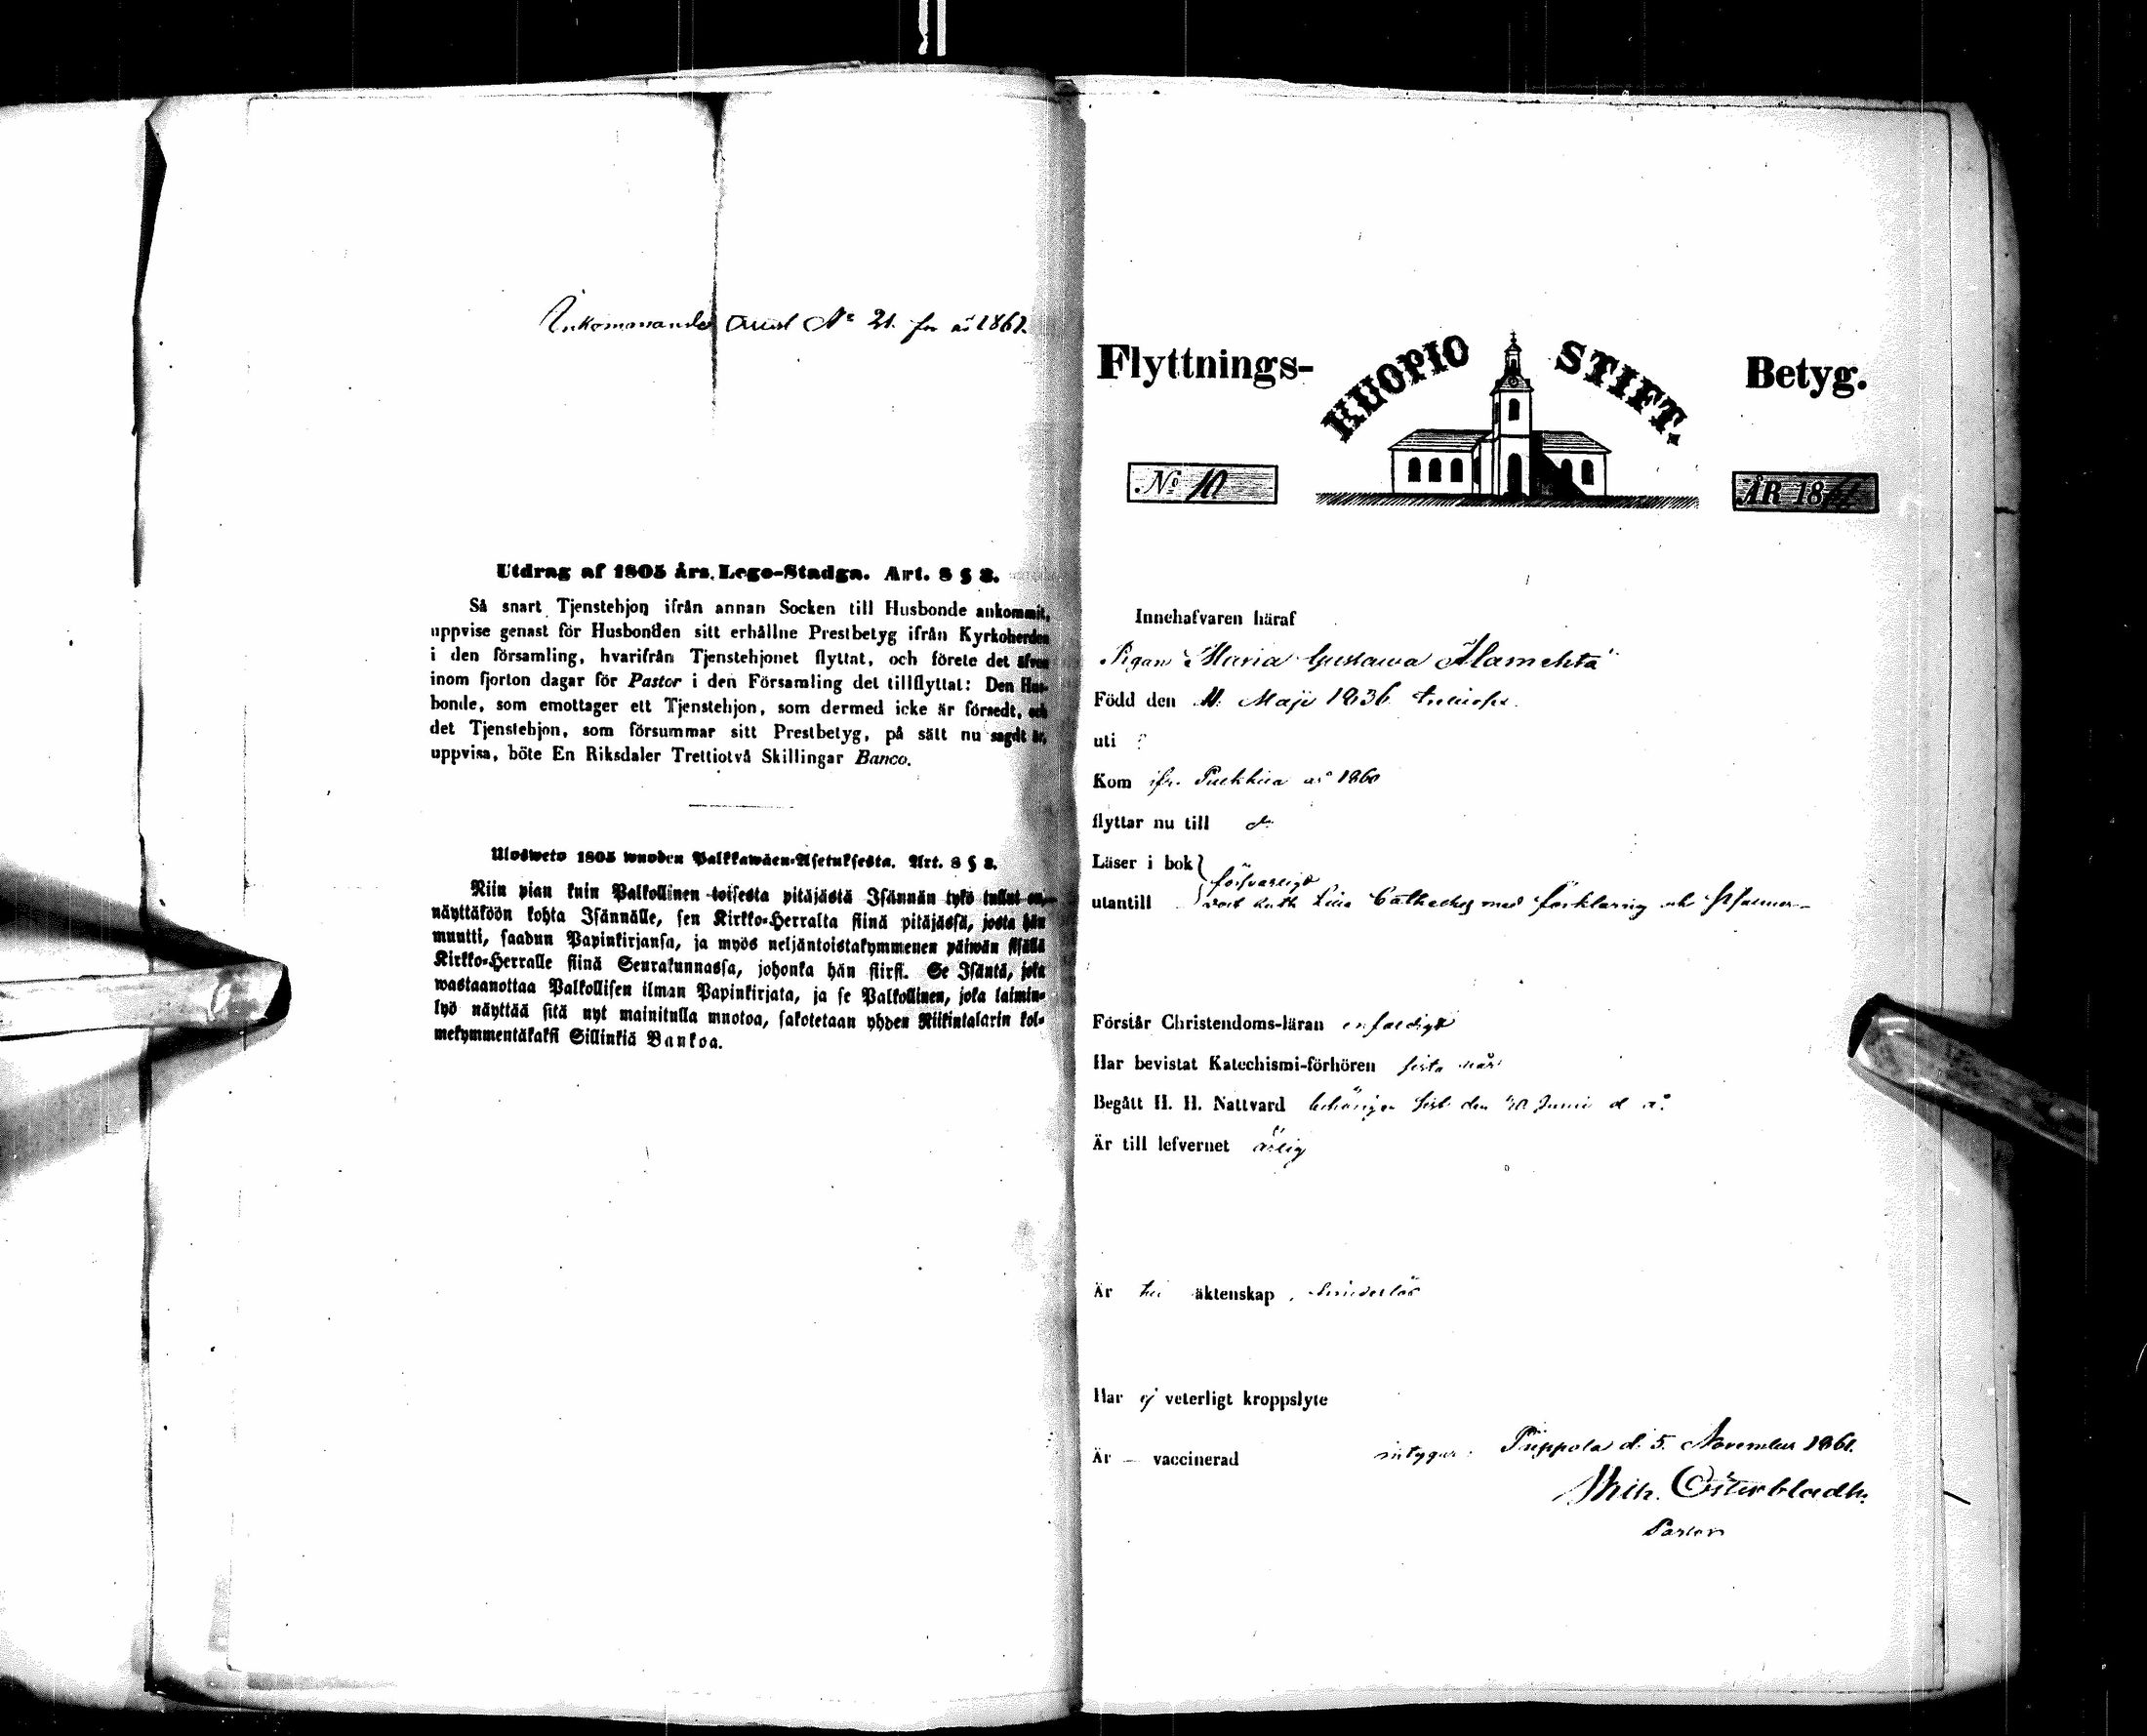 Inkommande Attest No 21. för år 1861.
Utdrag af 1805 års Lego-Stadga. Art. 8 § 2.
Så snart Tjenstehjon ifrån annan Socken till Husbonde ankommit,
uppvise genast för Husbonden sitt erhållne Prestbetyg ifrån Kyrkoherden
i den församling, hvarifrån Tjenstehjonet flyttat, och förete det äfven
inom fjorton dagar för Pastor i den Församling det tillflyttat: Den Hus-
bonde, som emottager ett Tjenstehjon, som dermed icke är försedt, och
det Tjenstehjon, som försummar sitt Prestbetyg, på sätt nu sagdt är,
uppvisa, böte En Riksdaler Trettiotvå Skillingar Banco.
Uloswето 1805 wuoden Palkkawäen-Asetuksesta. Art. 8 § 2.
Niin pian kuin Palkollinen toisesta pitäjästä Isännän tykö tullut on,
näyttäköön kohta Isännälle, sen Kirkko-Herralta siinä pitäjässä, josta hän
muutti, saadun Papinkirjansa, ja myös neljäntoistakymmenen päiwän sisällä
Kirkko-Herralle siinä Seurakunnassa, johonka hän siirsi. Se Isäntä, joka
wastaanottaa Palkollisen ilman Papinkirjata, ja se Palkollinen, joka laimin-
lyö näyttää sitä nyt mainitulla muotoa, sakotetaan yhden Riikintalarin kol-
mekymmentäkaksi Sillinkiä Bankoa.
Flyttnings- KUOPIO STIFT. Betyg.
No 10 ÅR 1861
Innehafvaren häraf
Pigan Maria Gustawa Alamehtä
Född den 11 Maji 1836
uti ?
Kom ifr. år 1860
flyttar nu till d:o
Läser i bok försvarligt
utantill Lilla Catheches med förklaring och
Förstår Christendoms-läran enfaldigt
Har bevistat Katechismi-förhören sista
Begått H. H. Nattvard sist den 30 Junii d. å.
Är till lefvernet ärlig
Är till äktenskap hinderlös
Har ej veterligt kroppslyte
Är – vaccinerad intygar: Piippola d. 5 November 1861.
Wilh. Österbladh.
Pastor